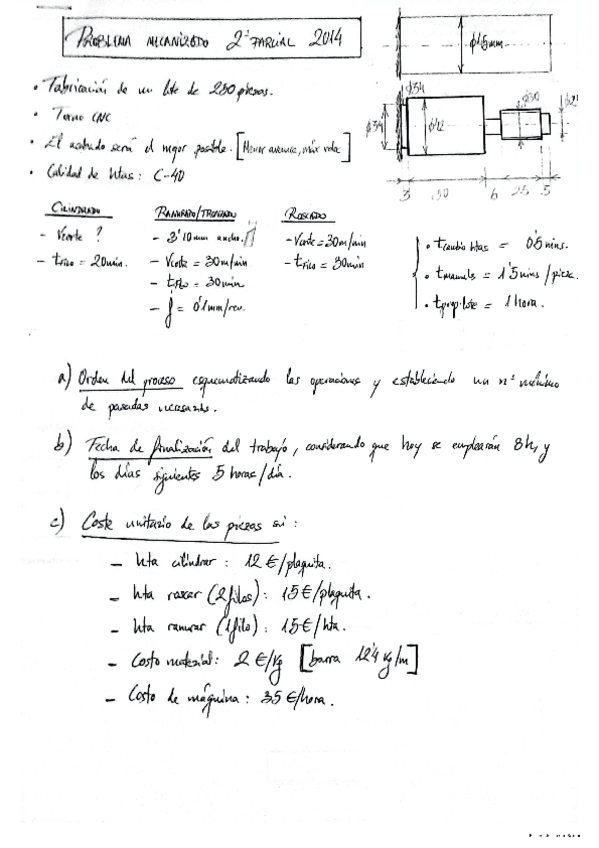 PROBLEMA MECANIZADO 2º PARCIAL 2014
· Fabricación de un lote de 250 piezas.
· Torno CNC
· El acabado será el mejor posible. [Menor avance, máx veloc]
· Calidad de htas: C-40
CILINDRADO
- Vcorte ?
- tfilo = 20min.
RANURADO/TRONZADO
- 3'10mm ancho.
- Vcorte = 30m/min
- tfilo = 30min
- f = 0'1mm/rev.
ROSCADO
- Vcorte = 30m/min
- tfilo = 30min
· tcambio htas = 0'5 mins.
· tmanuals = 1'5 mins / pieza.
· tprep.lote = 1 hora.
ϕ45mm
ϕ34
ϕ34
ϕ42
ϕ30
3
6
25
5
a) Orden del proceso esquematizando las operaciones y estableciendo un nº mínimo
de pasadas necesarias.
b) Fecha de finalización del trabajo, considerando que hoy se emplearán 8h, y
los días siguientes 5 horas/día.
c) Coste unitario de las piezas si:
- hta cilindrar: 12 €/plaquita.
- hta roscar (2 filos): 15 €/plaquita.
- hta ranurar (1 filo): 15 €/hta.
- Costo material: 2 €/kg [barra 12'4 kg/m]
- Costo de máquina: 35 €/hora.